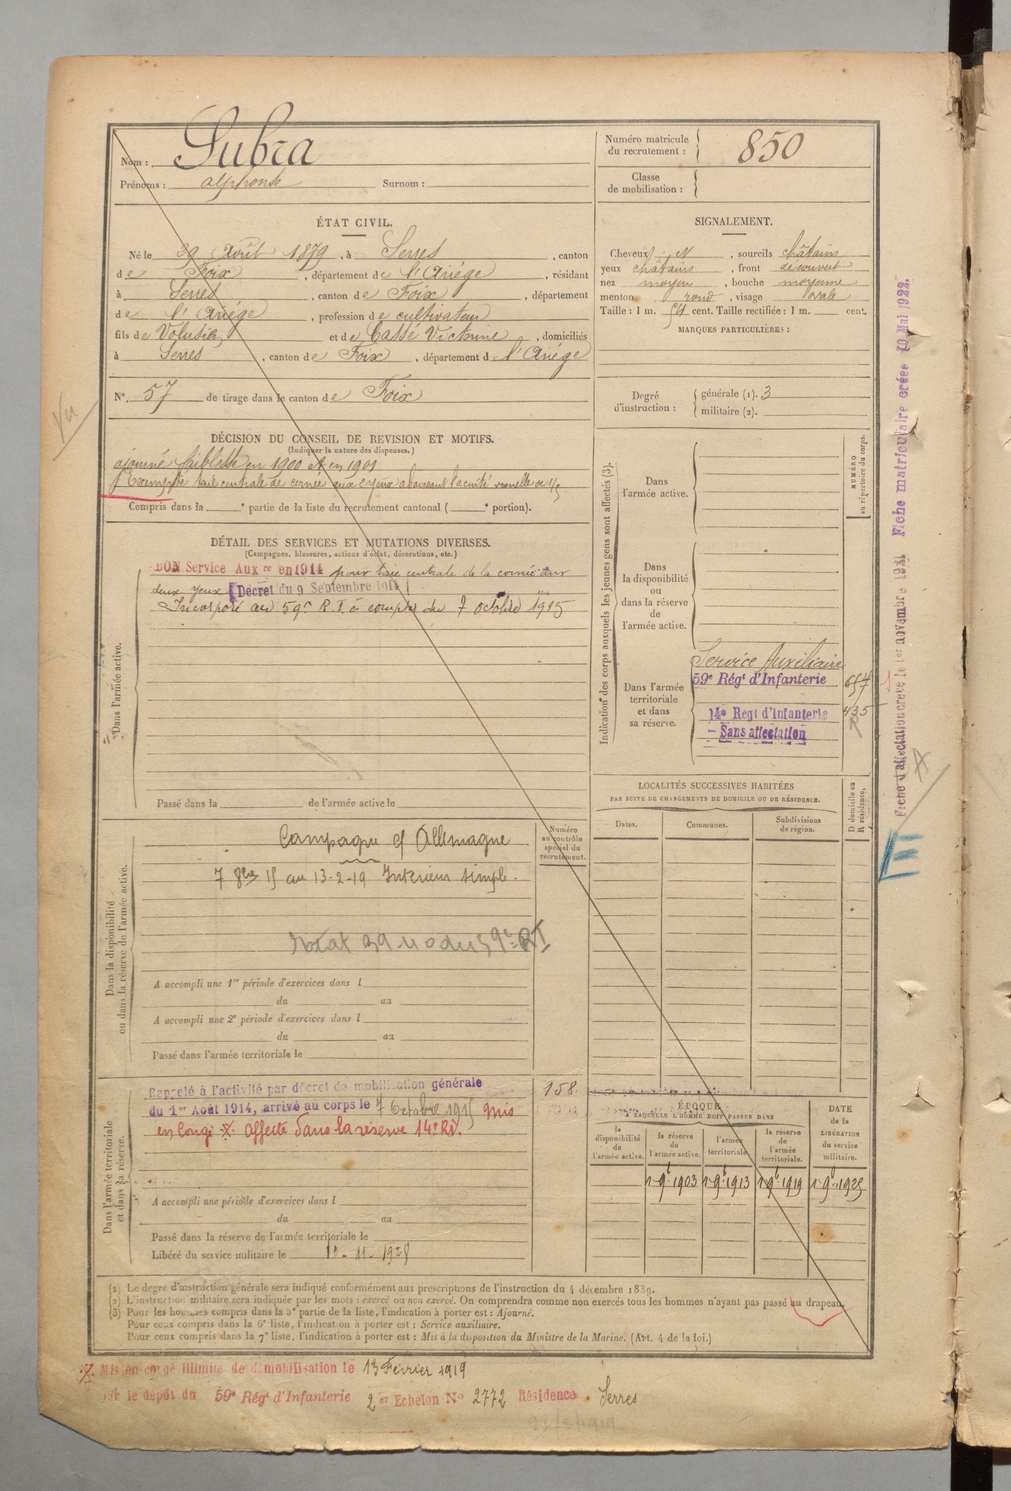 Nom : Subra
Prénoms : Alphonse Surnom :
Numéro matricule du recrutement : 850
Classe de mobilisation :
ÉTAT CIVIL.
Né le Août 1879, à Serres, canton
de Foix, département de l'Ariège, résidant
à Serres, canton de Foix, département
de l'Ariège, profession de cultivateur
fils de et de Cassé Victorine, domiciliés
à Serres, canton de Foix, département de l'Ariège
N° 57 de tirage dans le canton de Foix
SIGNALEMENT.
Cheveux , sourcils châtains
yeux châtains, front découvert
nez moyen, bouche moyenne
menton rond, visage ovale
Taille : 1 m. 54 cent. Taille rectifiée : 1 m. cent.
MARQUES PARTICULIÈRES :
Degré d'instruction : générale (1). 3
militaire (2).
Vu
DÉCISION DU CONSEIL DE REVISION ET MOTIFS.
(Indiquer la nature des dispenses.)
ajourné faiblesse en 1900 et en 1901
Exempté taie centrale de cornée aux 2 yeux abaissant l'acuité visuelle de 1/5
Compris dans la e partie de la liste du recrutement cantonal ( e portion).
DÉTAIL DES SERVICES ET MUTATIONS DIVERSES.
(Campagnes, blessures, actions d'éclat, décorations, etc.)
Dans l'armée active.
BON Service Auxre en 1914 pour taie centrale de la cornée aux
deux yeux [Décret du 9 Septembre 1914]
Incorporé au 59e R.I. à compter du 7 octobre 1915
Passé dans la de l'armée active le
Dans la disponibilité ou dans la réserve de l'armée active.
Campagne c/ Allemagne
7 8bre 15 au 13-2-19 Intérieur simple.
Numéro au contrôle spécial du recrutement.
A accompli une 1re période d'exercices dans l
du au
A accompli une 2e période d'exercices dans l
du au
Passé dans l'armée territoriale le
Dans l'armée territoriale et dans sa réserve.
158
Rappelé à l'activité par décret de mobilisation générale
du 1er Août 1914, arrivé au corps le 7 Octobre 1915 mis
en congé X affecté dans la réserve 14e RI.
A accompli une période d'exercices dans l
du au
Passé dans la réserve de l'armée territoriale le
Libéré du service militaire le
Indication des corps auxquels les jeunes gens sont affectés (3).
NUMÉRO au répertoire du corps.
Dans l'armée active.
Dans la disponibilité ou dans la réserve de l'armée active.
Dans l'armée territoriale et dans sa réserve.
Service Auxiliaire
59e Régt d'Infanterie
14e Régt d'Infanterie
Sans affectation
LOCALITÉS SUCCESSIVES HABITÉES
PAR SUITE DE CHANGEMENTS DE DOMICILE OU DE RÉSIDENCE.
D domicile ou R résidence.
Dates. Communes. Subdivisions de région.
ÉPOQUE
À LAQUELLE L'HOMME DOIT PASSER DANS
la disponibilité de l'armée active.
la réserve de l'armée active.
l'armée territoriale.
la réserve de l'armée territoriale.
DATE de la LIBÉRATION du service militaire.
1 9b 1903 1 9b 1913 1 9b 1919 1 9b 1925
Fiche d'affectation créée le 1er novembre 1921 Fiche matriculaire créée 10 Mai 1922.
(1) Le degré d'instruction générale sera indiqué conformément aux prescriptions de l'instruction du 4 décembre 1889.
(2) L'instruction militaire sera indiquée par les mots : exercé ou non exercé. On comprendra comme non exercés tous les hommes n'ayant pas passé au drapeau.
(3) Pour les hommes compris dans la 5e partie de la liste, l'indication à porter est : Ajourné.
Pour ceux compris dans la 6e liste, l'indication à porter est : Service auxiliaire.
Pour ceux compris dans la 7e liste, l'indication à porter est : Mis à la disposition du Ministre de la Marine. (Art. 4 de la loi.)
X Mis en congé illimité de démobilisation le 13 Février 1919
par le dépôt du 59e Régt d'Infanterie 2 Echelon N° 2772 Résidence Serres